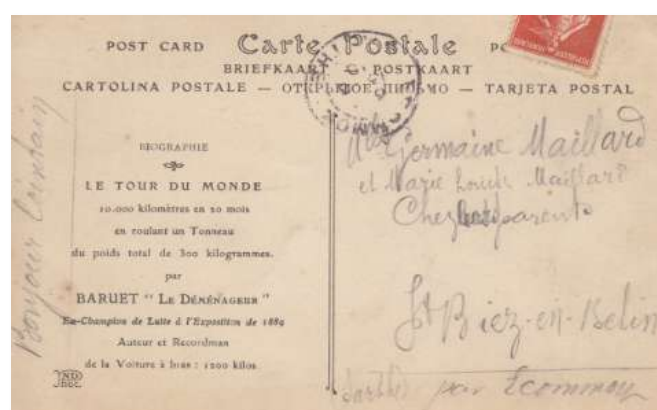 POST CARD Carte Postale
BRIEFKAART — POSTKAART
CARTOLINA POSTALE — ОТКРЫТОЕ ПИСЬМО — TARJETA POSTAL
Bonjour Lointain
BIOGRAPHIE
LE TOUR DU MONDE
10.000 kilomètres en 20 mois
en roulant un Tonneau
du poids total de 300 kilogrammes.
par
BARUET " LE DÉMÉNAGEUR "
Ex-Champion de Lutte à l'Exposition de 1889
Auteur et Recordman
de la Voiture à bras : 1200 kilos
ND
Phot.
Germaine Maillard
et Marie Louise Maillard
Chez parents
St Biez-en-Belin
(Sarthe) par Ecommoy